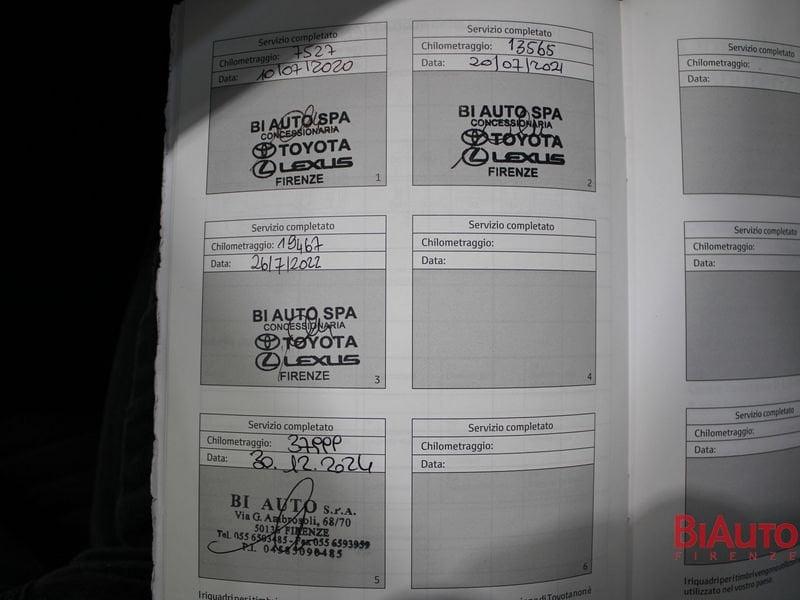 Servizio completato
Chilometraggio: 7527
Data: 10/07/2020
BI AUTO SPA
CONCESSIONARIA
TOYOTA
LEXUS
FIRENZE
1
Servizio completato
Chilometraggio: 13565
Data: 20/07/2021
BI AUTO SPA
CONCESSIONARIA
TOYOTA
LEXUS
FIRENZE
2
Servizio completato
Chilometraggio: 19467
Data: 26/7/2022
BI AUTO SPA
CONCESSIONARIA
TOYOTA
LEXUS
FIRENZE
3
Servizio completato
Chilometraggio:
Data:
4
Servizio completato
Chilometraggio:
Data: 30.12.2024
BI AUTO S.r.A.
Via G. Ambrosoli, 68/70
FIRENZE
Tel. 055 - Fax 055 6593959
P.I.
5
Servizio completato
Chilometraggio:
Data:
6
I riquadri per i
di Toyota non è
Servizio completato
Chilometraggio:
Data:
Servizio completato
Chilometraggio:
Data:
Servizio completato
Chilometraggio:
Data:
I riquadri per i timbri vengono
utilizzato nel vostro paese.
BIAUTO
FIRENZE